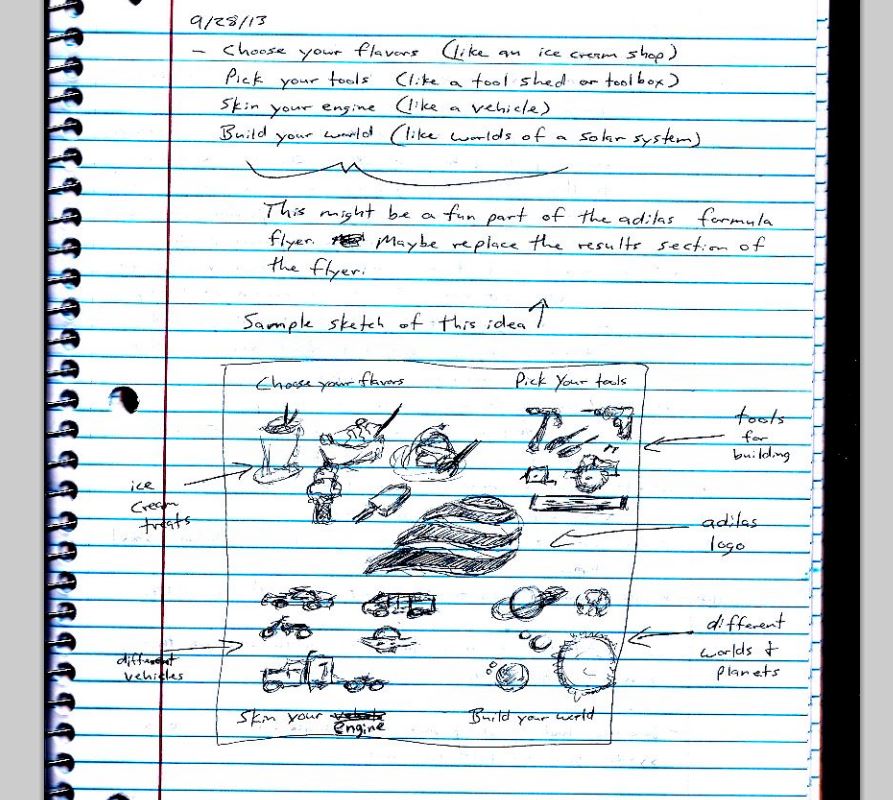 9/28/13
- Choose your flavors (like an ice cream shop)
Pick your tools (like a tool shed or toolbox)
Skin your engine (like a vehicle)
Build your world (like worlds of a solar system)
This might be a fun part of the adilas formula
flyer. Maybe replace the results section of
the flyer.
Sample sketch of this idea
Choose your flavors
Pick Your tools
tools
for
building
ice
cream
treats
adilas
logo
different
worlds &
planets
different
vehicles
Skin your
Engine
Build your world